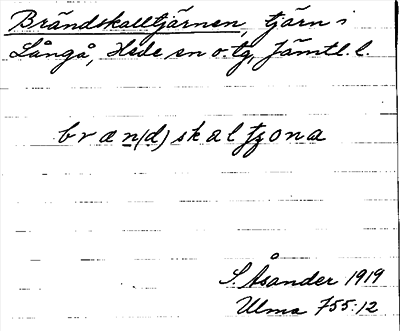 Brändskalltjärnen, tjärn i
Långå, Hede sn o. tg, Jämtl. l.
bran(d)skaltʒona
S. Åsander 1919
Ulma 755:12